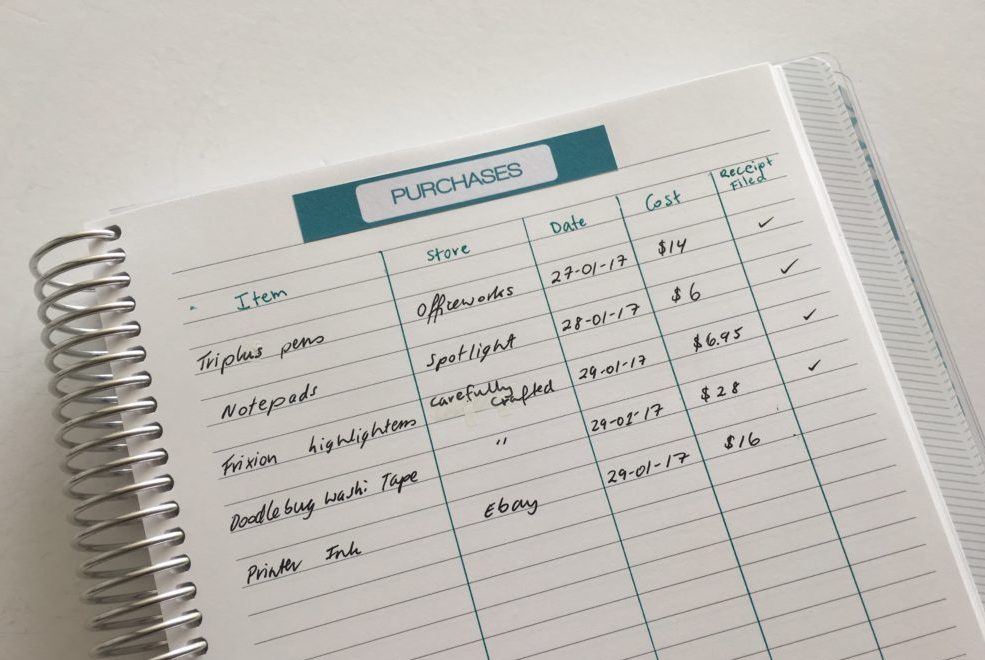 PURCHASES
Item Store Date Cost Receipt Filed
Triplus pens Officeworks 27-01-17 $14 ✓
Notepads Spotlight 28-01-17 $6 ✓
Frixion highlighters carefully crafted 29-01-17 $6.95 ✓
Doodlebug washi Tape " 29-01-17 $28 ✓
Printer Ink Ebay 29-01-17 $16